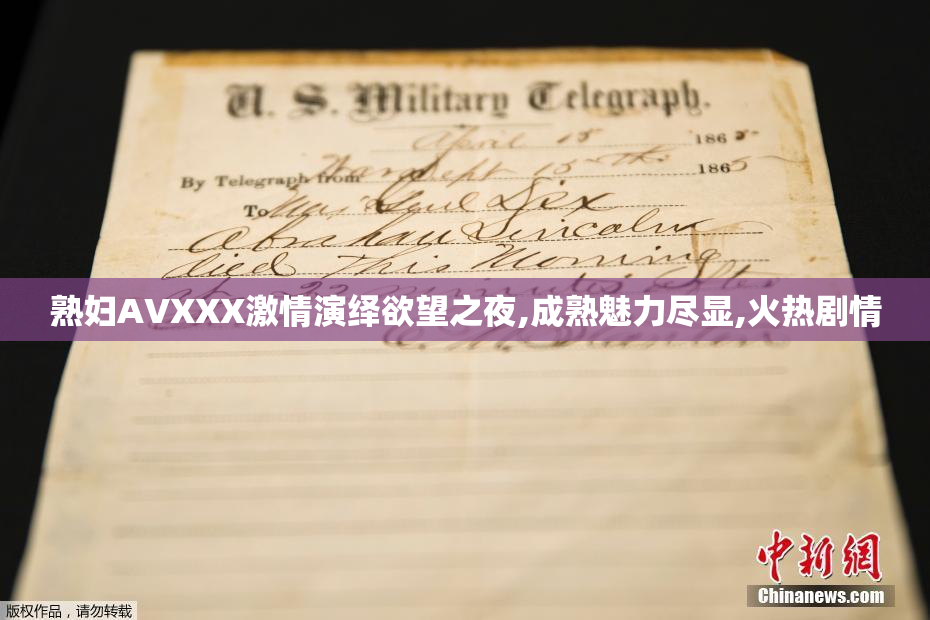 U. S. Military Telegraph.
April 15 1865
By Telegraph from War Dept 15th 1865
To Maj Genl Dix
Abraham Lincoln
died This Morning
22 minutes after
熟妇AVXXX激情演绎欲望之夜,成熟魅力尽显,火热剧情
E. M. Stanton
中新网
Chinanews.com
版权作品，请勿转载